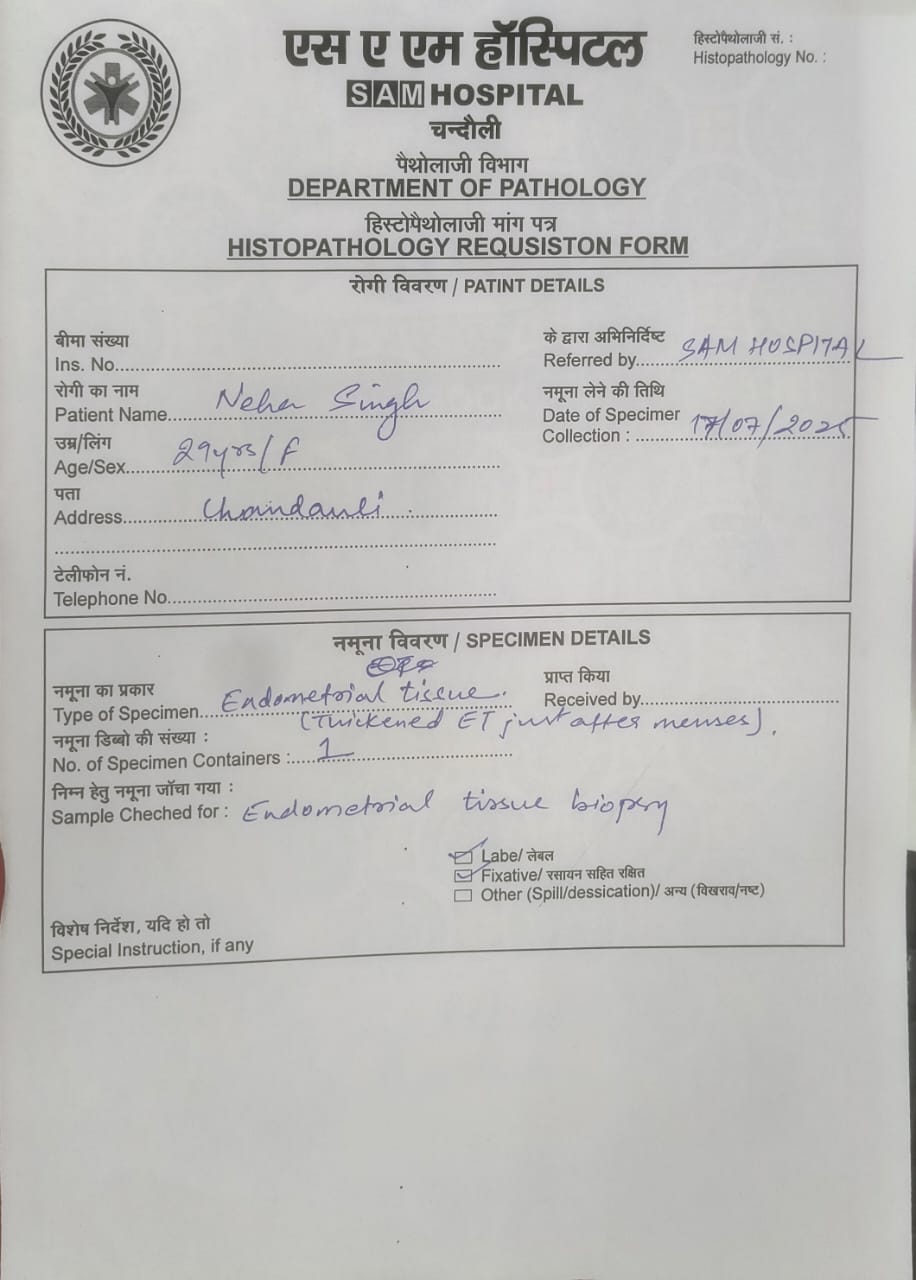 एस ए एम हॉस्पिटल
SAM HOSPITAL
चन्दौली
हिस्टोपैथोलाजी सं. :
Histopathology No. :
पैथोलाजी विभाग
DEPARTMENT OF PATHOLOGY
हिस्टोपैथोलाजी मांग पत्र
HISTOPATHOLOGY REQUSISTON FORM
रोगी विवरण / PATINT DETAILS
बीमा संख्या
Ins. No.
के द्वारा अभिनिर्दिष्ट
Referred by SAM HOSPITAL
रोगी का नाम
Patient Name Neha Singh
नमूना लेने की तिथि
Date of Specimen
Collection : 17/07/2025
उम्र/लिंग
Age/Sex 29yrs/F
पता
Address Chandauli
टेलीफोन नं.
Telephone No.
नमूना विवरण / SPECIMEN DETAILS
नमूना का प्रकार
Type of Specimen Endometrial tissue.
(Thickened ET just after menses).
प्राप्त किया
Received by
नमूना डिब्बो की संख्या :
No. of Specimen Containers : 1
निम्न हेतु नमूना जॉचा गया :
Sample Cheched for : Endometrial tissue biopsy
Labe/ लेबल
Fixative/ रसायन सहित रक्षित
Other (Spill/dessication)/ अन्य (विखराव/नष्ट)
विशेष निर्देश, यदि हो तो
Special Instruction, if any